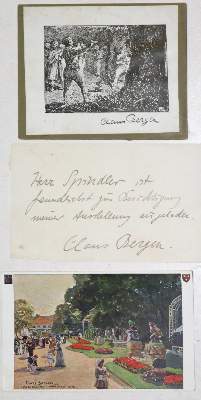 Claus Bergen
Herr Spindler ist
freundlichst zur Besichtigung
meiner Ausstellung eingeladen.
Claus Bergen.